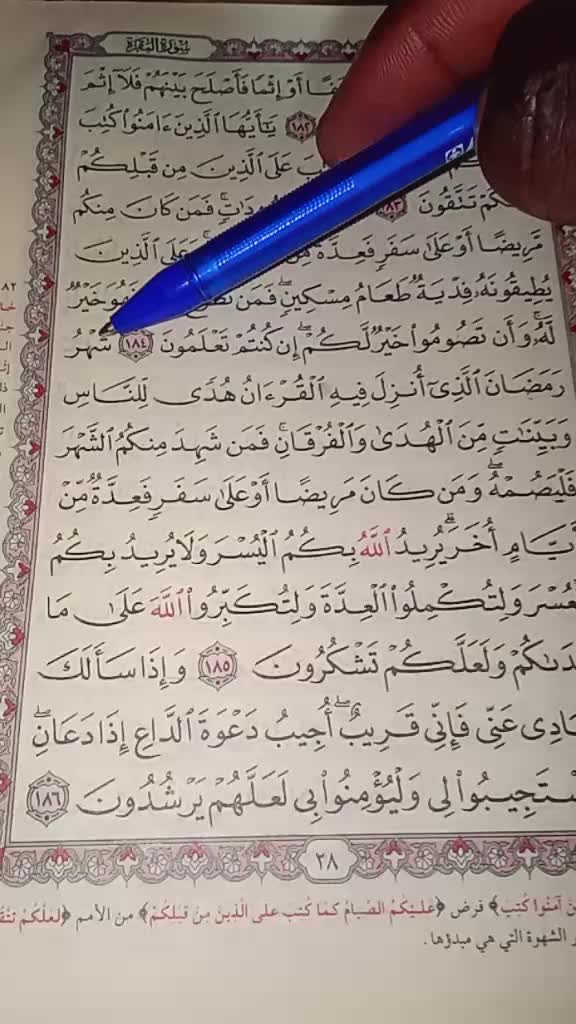 سُورَةُ البَقَرَةِ
أَوْ إِثْمًا فَأَصْلَحَ بَيْنَهُمْ فَلَآ إِثْمَ
١٨٢ يَٰٓأَيُّهَا ٱلَّذِينَ ءَامَنُوا۟ كُتِبَ
عَلَى ٱلَّذِينَ مِن قَبْلِكُمْ
تَتَّقُونَ ١٨٣ فَمَن كَانَ مِنكُم
مَّرِيضًا أَوْ عَلَىٰ سَفَرٍ فَعِدَّةٌ وَعَلَى ٱلَّذِينَ
يُطِيقُونَهُۥ فِدْيَةٌ طَعَامُ مِسْكِينٍ ۖ فَمَن فَهُوَ خَيْرٌ
لَّهُۥ ۚ وَأَن تَصُومُوا۟ خَيْرٌ لَّكُمْ ۖ إِن كُنتُمْ تَعْلَمُونَ ١٨٤ شَهْرُ
رَمَضَانَ ٱلَّذِىٓ أُنزِلَ فِيهِ ٱلْقُرْءَانُ هُدًى لِّلنَّاسِ
وَبَيِّنَٰتٍ مِّنَ ٱلْهُدَىٰ وَٱلْفُرْقَانِ ۚ فَمَن شَهِدَ مِنكُمُ ٱلشَّهْرَ
فَلْيَصُمْهُ ۖ وَمَن كَانَ مَرِيضًا أَوْ عَلَىٰ سَفَرٍ فَعِدَّةٌ مِّنْ
أَيَّامٍ أُخَرَ ۗ يُرِيدُ ٱللَّهُ بِكُمُ ٱلْيُسْرَ وَلَا يُرِيدُ بِكُمُ
ٱلْعُسْرَ وَلِتُكْمِلُوا۟ ٱلْعِدَّةَ وَلِتُكَبِّرُوا۟ ٱللَّهَ عَلَىٰ مَا
هَدَىٰكُمْ وَلَعَلَّكُمْ تَشْكُرُونَ ١٨٥ وَإِذَا سَأَلَكَ
عِبَادِى عَنِّى فَإِنِّى قَرِيبٌ ۖ أُجِيبُ دَعْوَةَ ٱلدَّاعِ إِذَا دَعَانِ ۖ
فَلْيَسْتَجِيبُوا۟ لِى وَلْيُؤْمِنُوا۟ بِى لَعَلَّهُمْ يَرْشُدُونَ ١٨٦
٢٨
آمَنُوا كُتِبَ﴾ فرض ﴿عَلَيْكُمُ الصِّيَامُ كَمَا كُتِبَ عَلَى الَّذِينَ مِنْ قَبْلِكُمْ﴾ من الأمم
الشهوة التي هي مبدؤها .